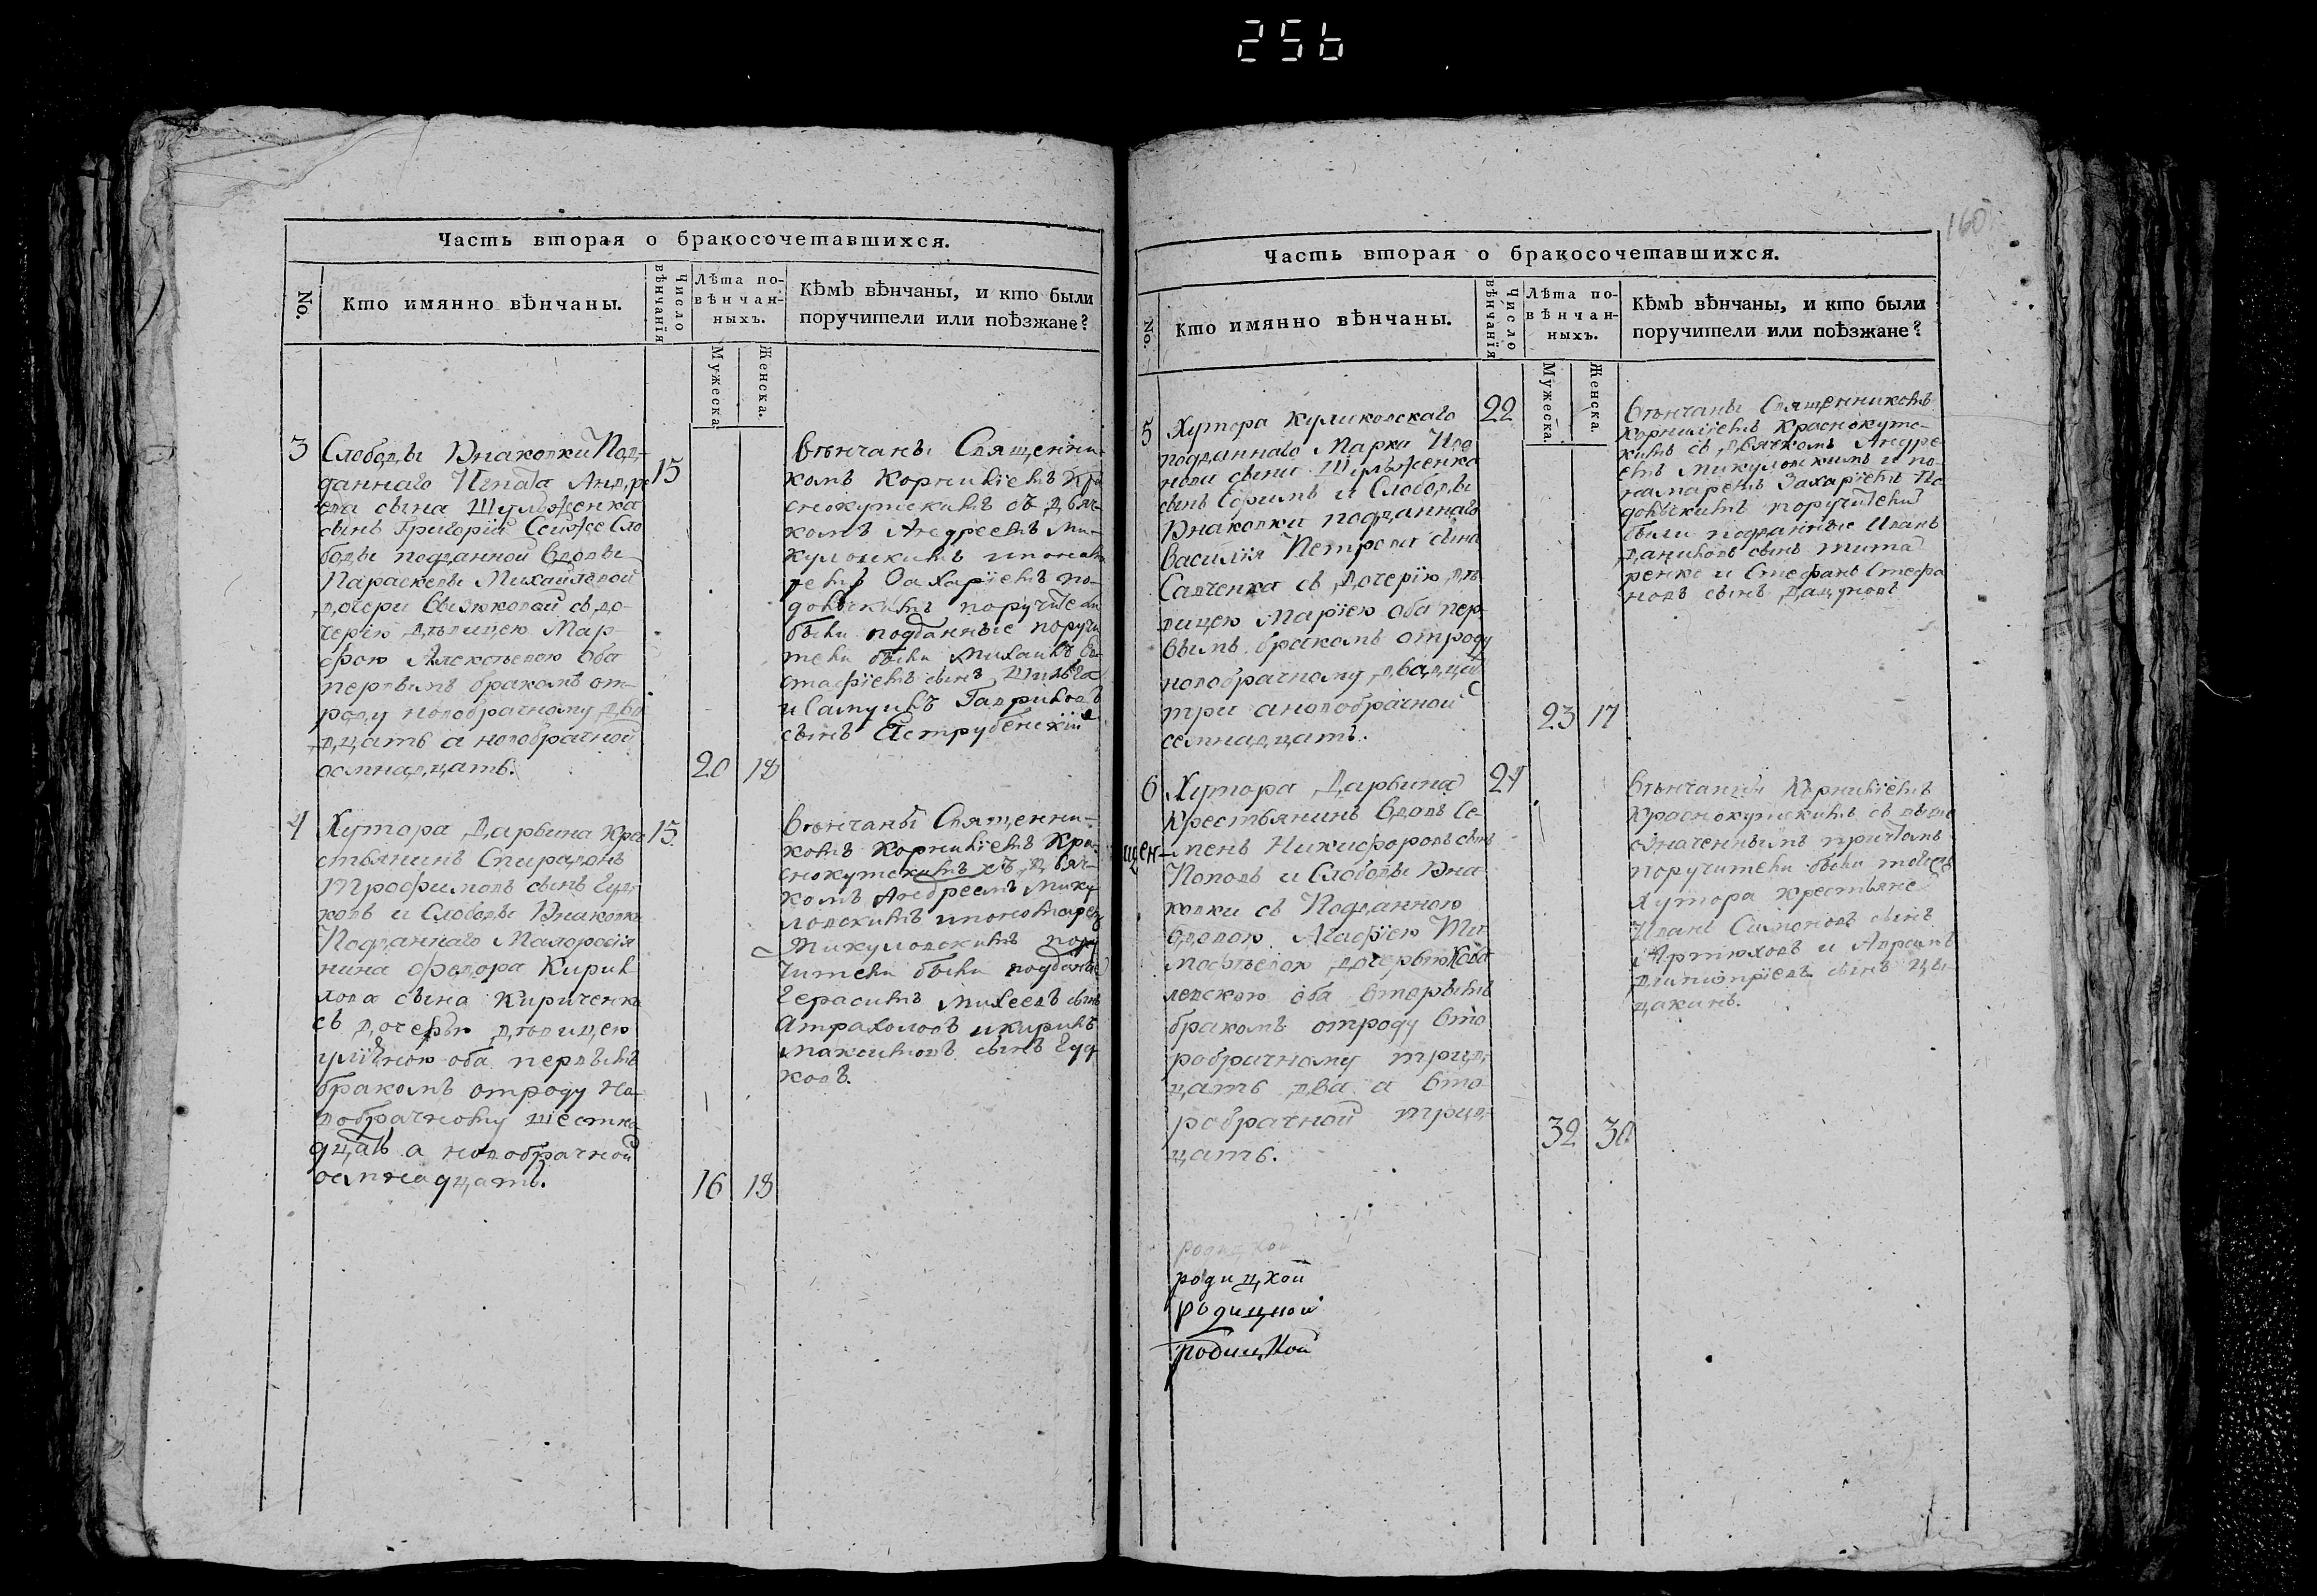 256
160
Часть вторая о бракосочетавшихся.
No.
Кто имянно вѣнчаны.
Число вѣнчанїя
Лѣта по-
вѣнчан-
ныхъ.
Мужеска.
Женска.
Кѣмъ вѣнчаны, и кто были
поручители или поѣзжане?
3
Слободы Внаковки Под-
даннаго Игната Андре
ева сына Шульженка
сынъ Григорїй Сей же Сло
боды подданной вдовы
Параскевы Михайлевой
дочери бы
съ до-
черїю дѣвицею Мар-
фою Алексѣевою оба
первымъ бракомъ от-
роду новобрачному два
дцать а новобрачной
осмнадцать.
15
20
18
вѣнчаны Священни-
комъ Корнилїемъ Кра
снокутскимъ съ дьяч-
комъ Андреемъ Ми-
куловскимъ и понома
ремъ Захарїемъ По-
поручители
были подданные поручи
тели были Михаилъ Ев
стафїевъ сынъ
и Самуилъ Гавриловъ
сынъ Яструбенскїй
4
Хутора Дарьина кре
стьянинъ Спиридонъ
Трофимовъ сынъ Гуд-
ковъ и Слободы Внаковки
Подданнаго Малоросїя
нина Федора Кирил
лова сына Кириченка
съ дочерью дѣвицею
улїяною оба первымъ
бракомъ отроду но-
вобрачному шестна
дцать а новобрачной
осмнадцать.
15.
16
18
вѣнчаны Священни-
комъ Корнилїемъ Кра-
снокутскимъ съ дьяч-
комъ Андреемъ Мику
ловскимъ и пономаремъ
Микуловскимъ пору
чители были подданные
Герасимъ Михеевъ сынъ
Атрахоловъ и Кирилъ
Максимовъ сынъ Гуд
ковъ.
Часть вторая о бракосочетавшихся.
No.
Кто имянно вѣнчаны.
Число вѣнчанїя
Лѣта по-
вѣнчан-
ныхъ.
Мужеска.
Женска.
Кѣмъ вѣнчаны, и кто были
поручители или поѣзжане?
5
Хутора Куликовскаго
подданнаго Марки Ива
нова сына Шульженка
сынъ Ефимъ и Слободы
Внаковки подданнаго
Василїя Петрова сына
Савченка съ дочерїю дѣ
вицею Марїею оба пер-
вымъ бракомъ отроду
новобрачному двадцать
три а новобрачной
семнадцать.
22
23
17
вѣнчаны Священникомъ
Корнилїемъ Краснокутс-
кимъ съ дьячкомъ Андре
емъ Микуловскимъ и по-
намаремъ Захарїемъ По
поручители
были подданные Иванъ
Даниловъ сынъ Тита
ренко и Стефанъ Стефа
новъ сынъ Дацуновъ
6
Хутора Дарьина
Крестьянинъ вдовъ Се-
менъ Никифоровъ сынъ
Поповъ и Слободы Вна
ковки съ Подданною
вдовою Агафїею Ти
мофѣевою дочерью Кова
левскою оба вторымъ
бракомъ отроду вто
робрачному трид-
цать два а вто
робрачной трид-
цать.
24
32
30
вѣнчаны Корнилїемъ
Краснокутскимъ съ выше
означеннымъ причтомъ
поручители были тогожъ
Хутора крестьяне
Иванъ Симоновъ сынъ
Артюховъ и Аврамъ
Димитрїевъ сынъ Цы-
цакинъ.
щен-
родицкой
родицкой
родицкой
родицкой